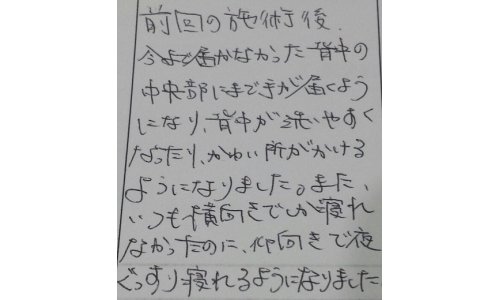 前回の施術後、
今まで届かなかった背中の
中央部にまで手が届くよう
になり、背中が洗いやすく
なったり、かゆい所がかける
ようになりました。また、
いつも横向きでしか寝れ
なかったのに、仰向きで夜
ぐっすり寝れるようになりました